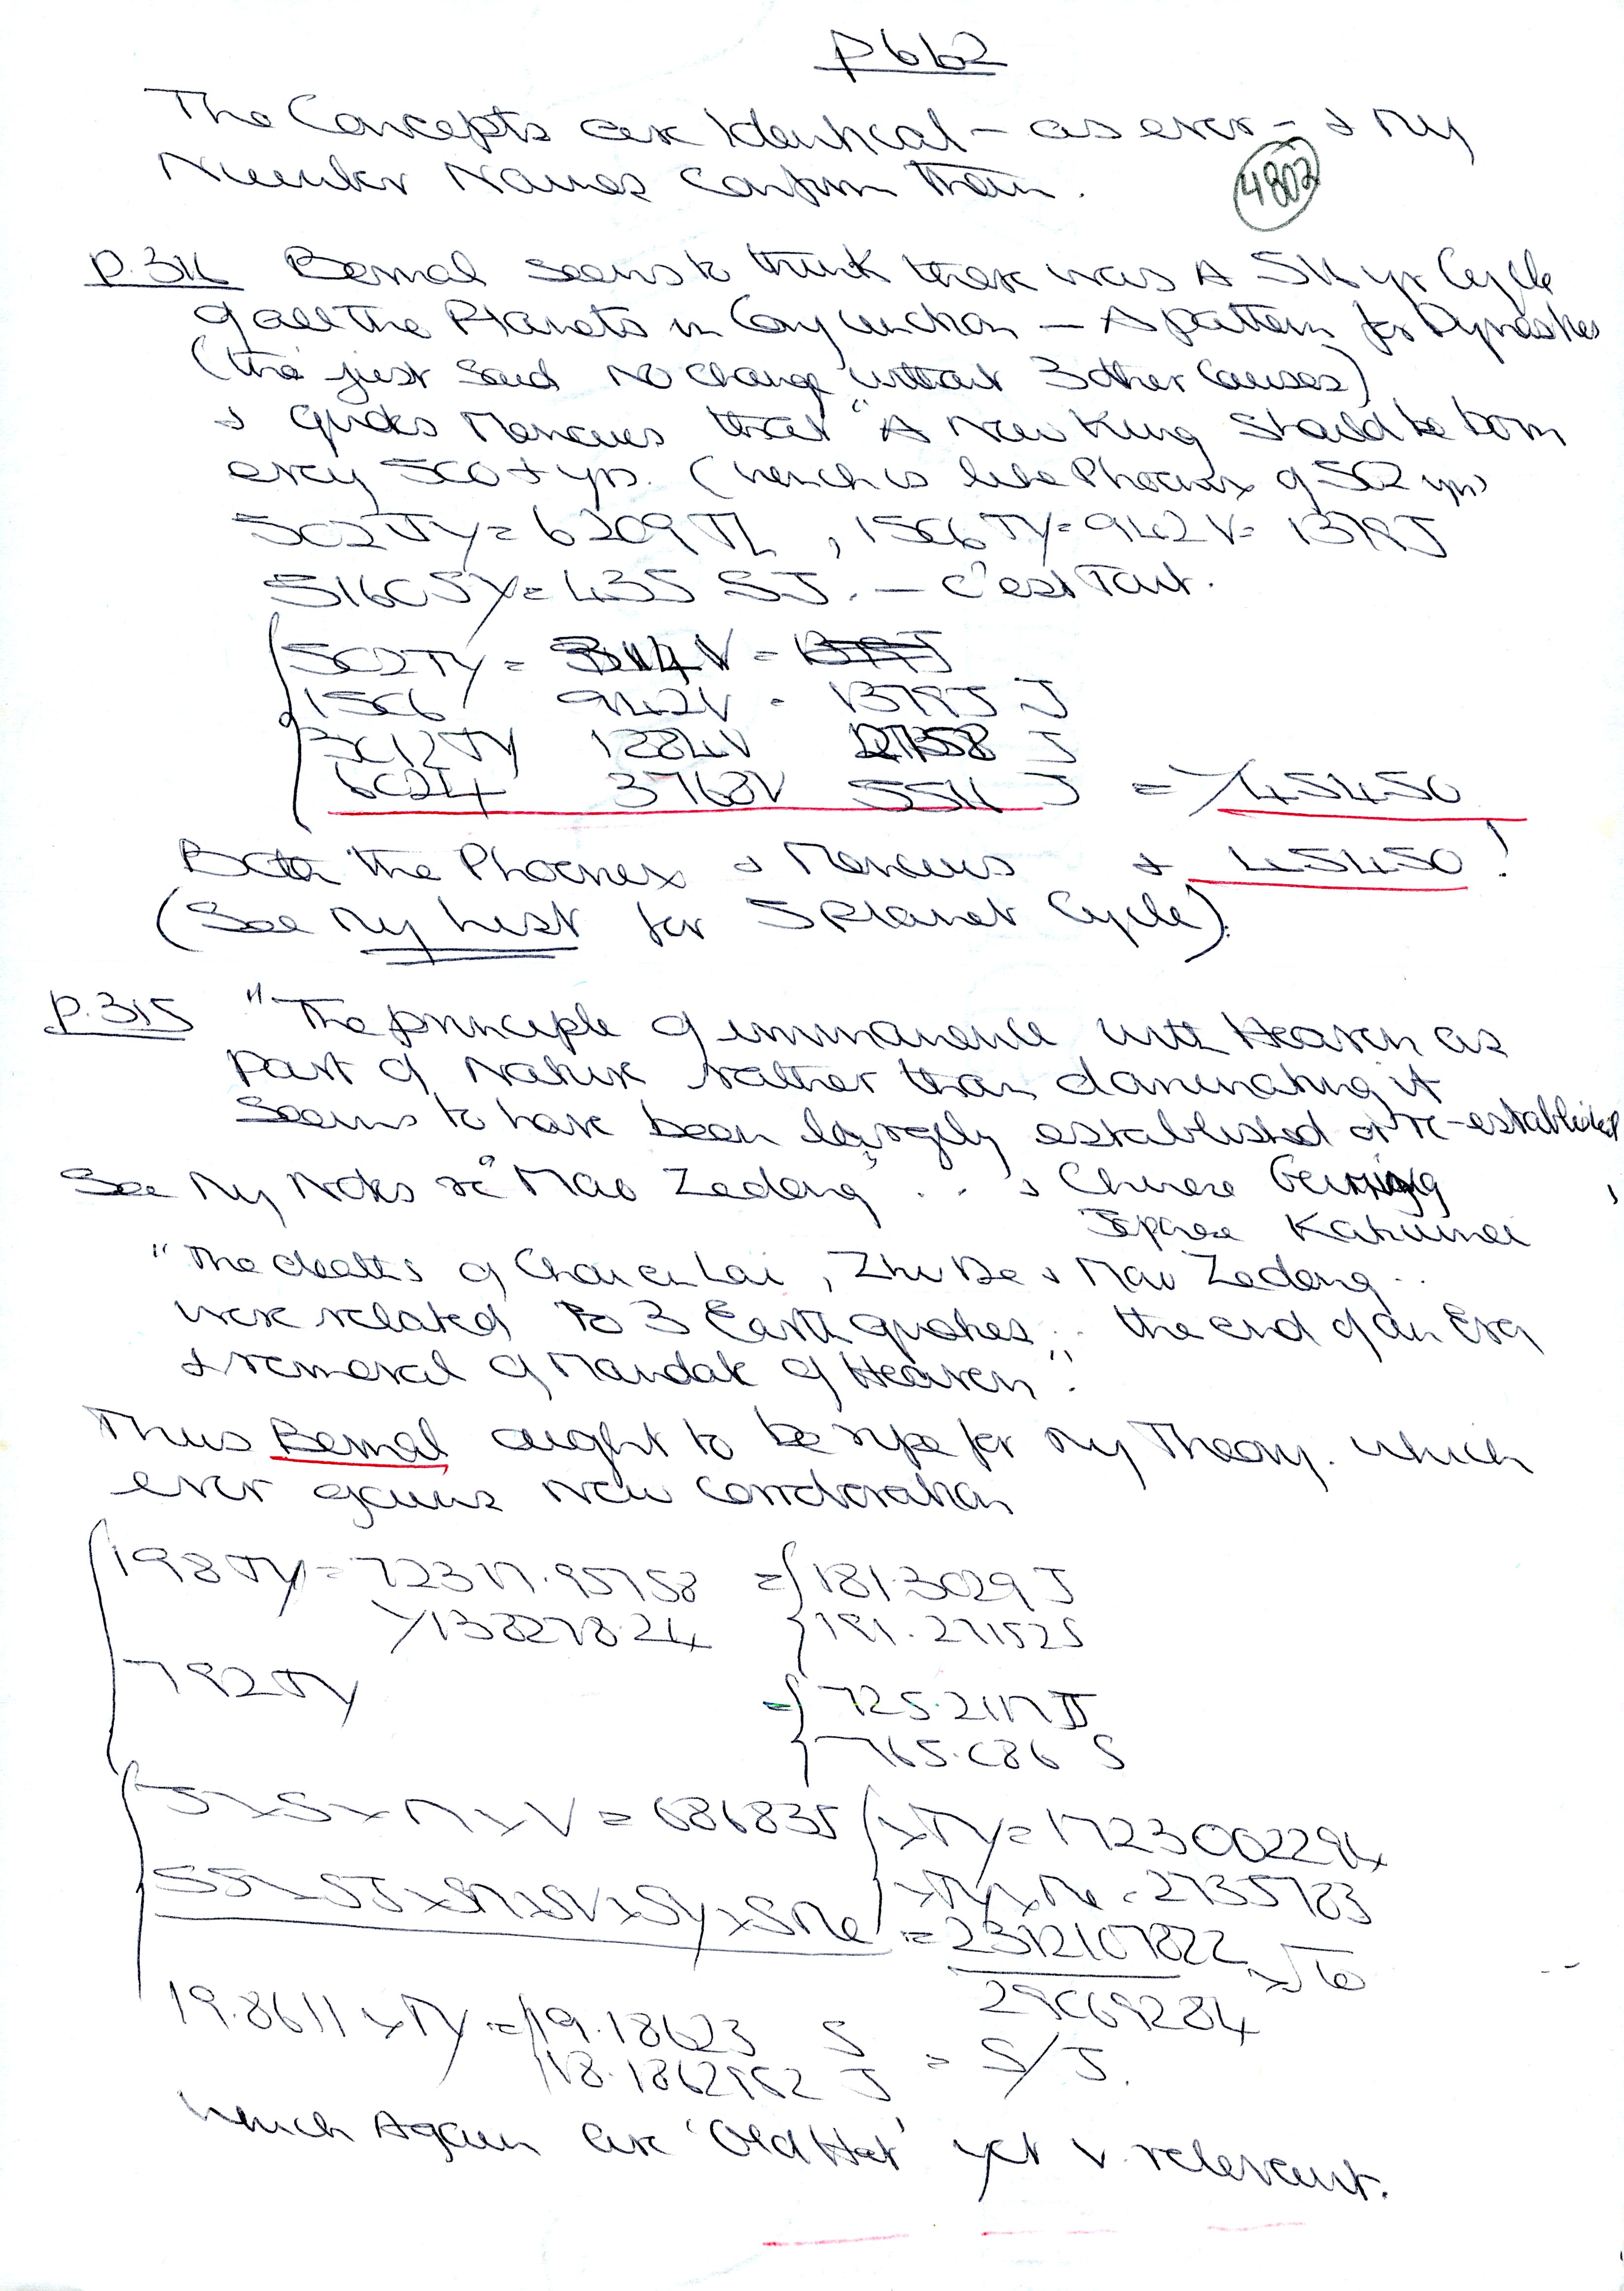 p 662
The Concepts are Identical - as ever - & My
Number Names Confirm Them.
4802
p.314 Bernal seems to think there was A 516 yr Cycle
of all The Planets in Conjunction - A pattern for Dynasties
(tho' just said No change without 3 other Causes)
& quotes Mencius that "A New King should be born
every 500 + yrs. (which is like Phoenix of 502 yrs)
502 TY = 6209 TL , 1506 TY = 942 V = 1379 J
5160 SY = 435 SJ. - C'est Tout.
502 TY =
1506 942 V = 1379 J J
3012 TY 1884 V 2758 J
6024 3768 V 5516 J = Y 45450
Both The Phoenix & Mencius & 45450 !
(See My List for 5 Planet Cycle).
p.315 "The principle of immanence with Heaven as
part of Nature rather than dominating it
seems to have been largely established or re-established
See My Notes re "Mao Zedong" .. & Chinese Geming ,
Japnese Kakumei
"The deaths of Chou en Lai , Zhu De & Mao Zedong ..
were related to 3 Earthquakes .. the end of an Era
& removal of Mandate of Heaven".
Thus Bernal ought to be ripe for My Theory. which
ever gains New Corroboration
198 TY = 72317.95758 = 181.3029 J
Y138278.24 191.271525
792 TY = 725.2117 J
765.086 S
J x S x M x V = 686835 x TY = 1723002294
SS x SJ x SM x SV x SY x SMe x TY x Me = 2735783
= 2312107822 x √6
29069284
19.8611 x TY = 19.18623 S = S/J.
18.1862962 J
which Again are 'Old Hat' yet v. relevant.